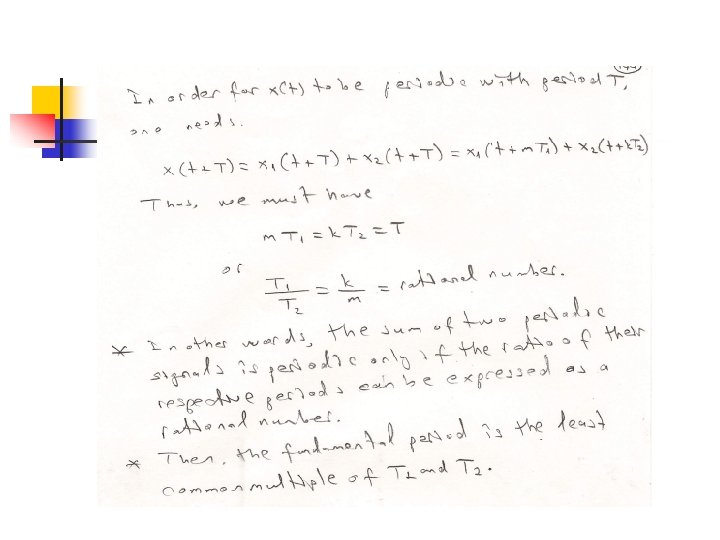 In order for x(t) to be periodic with period T,
one needs.
x(t+T) = x₁(t+T) + x₂(t+T) = x₁(t+mT₁) + x₂(t+kT₂)
Thus, we must have
mT₁ = kT₂ = T
or
T₁/T₂ = k/m = rational number.
* In other words, the sum of two periodic
signals is periodic only if the ratio of their
respective periods can be expressed as a
rational number.
* Then, the fundamental period is the least
common multiple of T₁ and T₂.